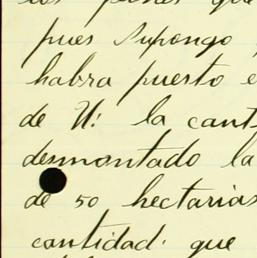 los peones que
pues supongo
habra puesto e
de U! la cant
desmontado la
de 50 hectarias
cantidad. que